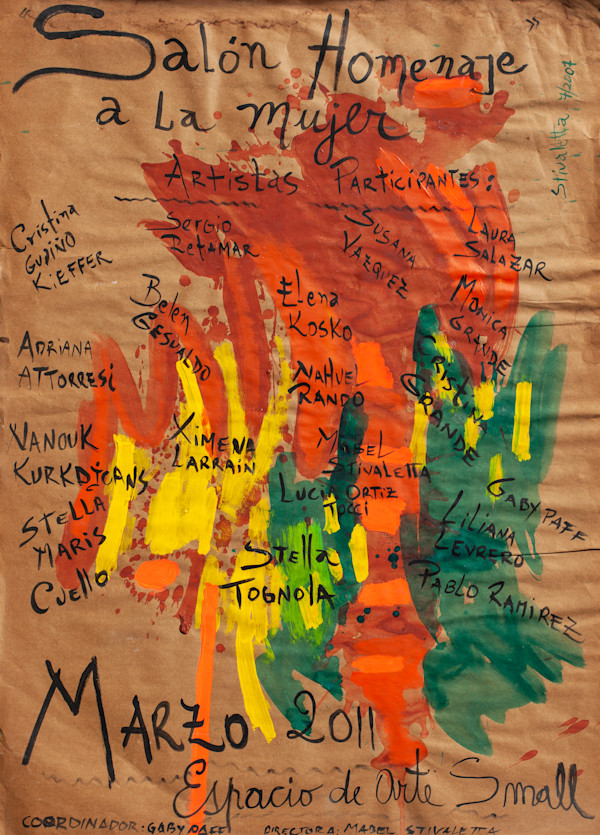 "Salón Homenaje
a la mujer"
Stivaletta 7/2007
Artistas Participantes:
Cristina
Gudiño
Kieffer
Sergio
Betamar
Susana
Vazquez
Laura
Salazar
Belen
Gesualdo
Elena
Kosko
Monica
Grande
Adriana
Attorresi
Nahuel
Rando
Cristina
Grande
Vanouk
Ximena
Larrain
Mabel
Stivaletta
Stella
Maris
Cuello
Lucia Ortiz
Tocci
Gaby Paff
Liliana
Levrero
Stella
Tognola
Pablo Ramirez
Marzo 2011
Espacio de arte Small
Coordinador: Gaby Paff Directora: Mabel Stivaletta